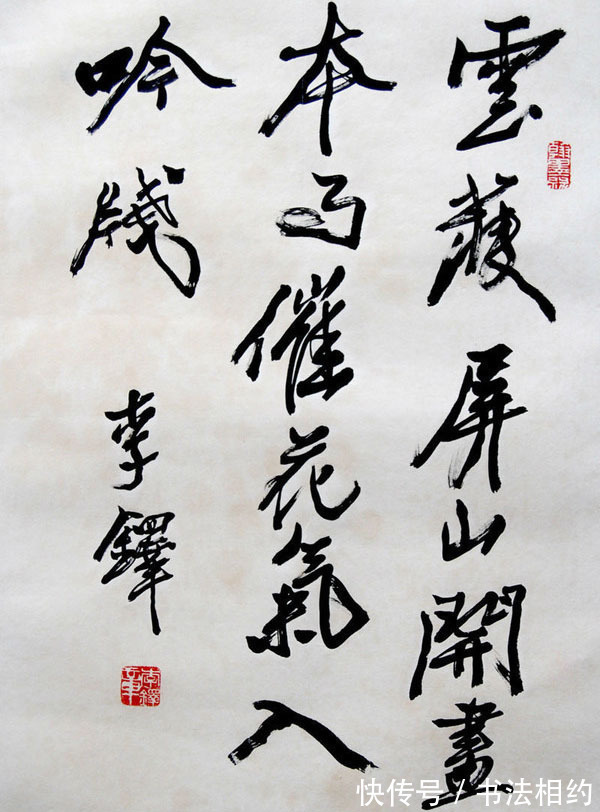 雲護屏山開畫
本雨催花氣入
吟牋
李鐸
快传号/书法相约